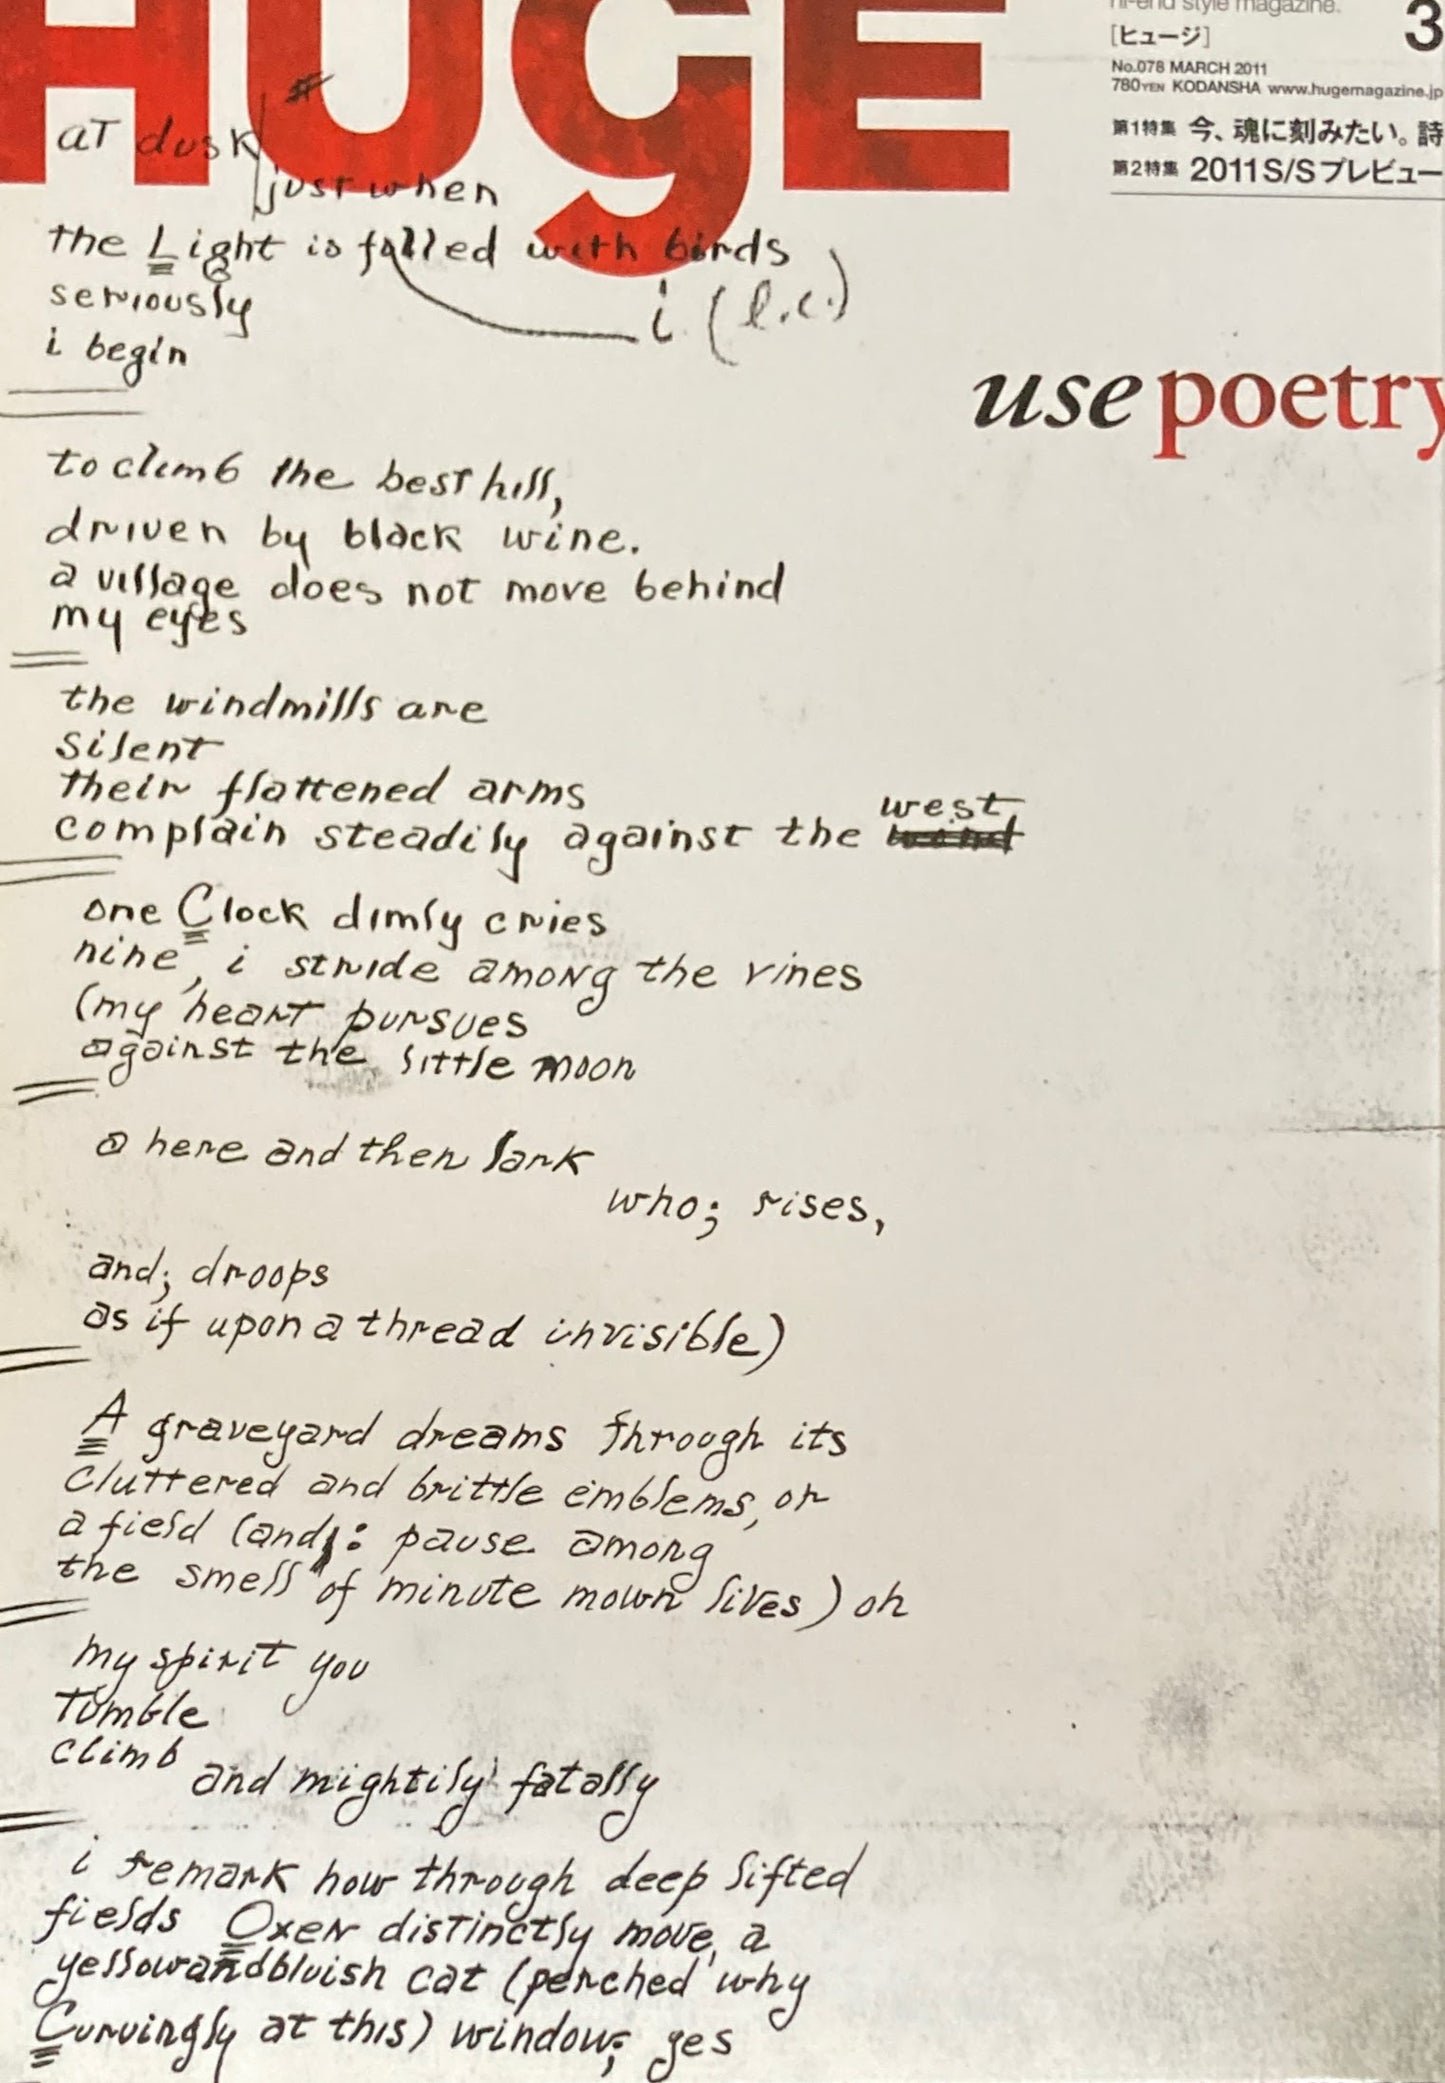 HUGE
hi-end style magazine.
[ヒュージ]
3
No.078 MARCH 2011
780YEN KODANSHA www.hugemagazine.jp
第1特集 今、魂に刻みたい。詩
第2特集 2011 S/Sプレビュー
use poetry
#
at dusk
just when
the Light is filled with birds
seriously
i (l.c.)
i begin
to climb the best hill,
driven by black wine.
a village does not move behind
my eyes
the windmills are
silent
their flattened arms
complain steadily against the west
one Clock dimly cries
nine, i stride among the vines
(my heart pursues
against the little moon
a here and then lark
who; rises,
and; droops
as if upon a thread invisible)
A graveyard dreams through its
cluttered and brittle emblems, or
a field (and: pause among
the smell of minute mown lives) oh
my spirit you
tumble
climb
and mightily fatally
i remark how through deep lifted
fields Oxen distinctly move, a
yellowandbluish cat (perched why
Curvingly at this) window; yes